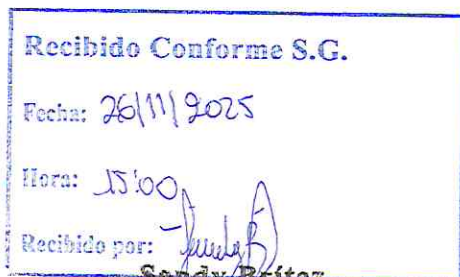 Recibido Conforme S.G.
Fecha: 26/11/2025
Hora: 15:00
Recibido por:
Sandy Brítez